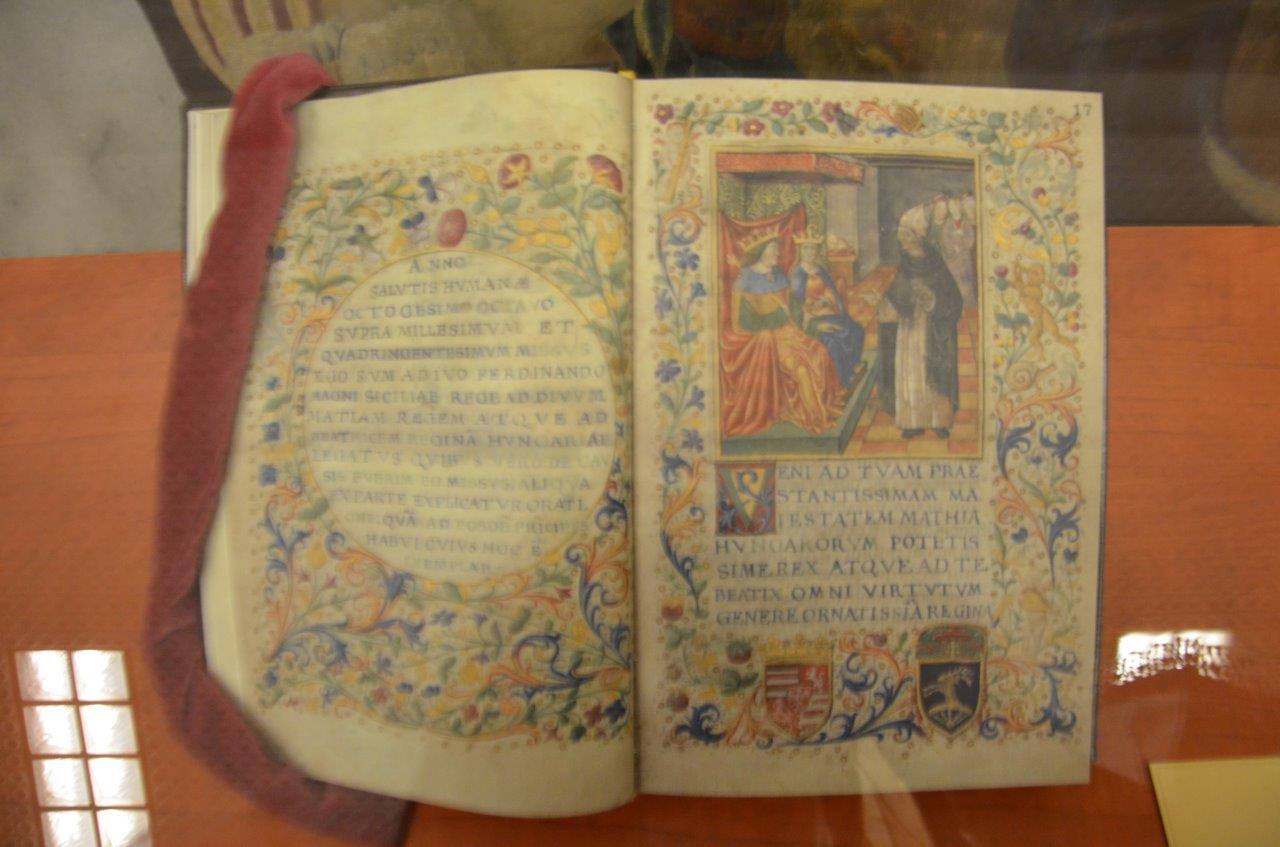 ANNO
SALVTIS HVMANÆ
OCTOGESIMO OCTAVO
SVPRA MILLESIMVM ET
QVADRINGENTESIMVM MISSVS
EGO SVM A DIVO FERDINANDO
MAGNI SICILIAE REGE AD DIVVM
MATIAM REGEM ATQVE AD
BEATRICEM REGINĀ HVNGARIAE
LEGATVS QVIBVS VERO DE CAV
SIS FVERIM EO MISSVS ALIQVA
EX PARTE EXPLICATVR ORATI
ONE QVĀ AD EOSDĒ
HABVI CVIVS HOC Ē
EXEMPLAR
17
VENI AD TVAM PRAE
STANTISSIMAM MA
IESTATEM MATHIA
HVNGARORVM POTĒTIS
SIME REX ATQVE AD TE
BEATIX OMNI VIRTVTVM
GENERE ORNATISSIĀ REGINA